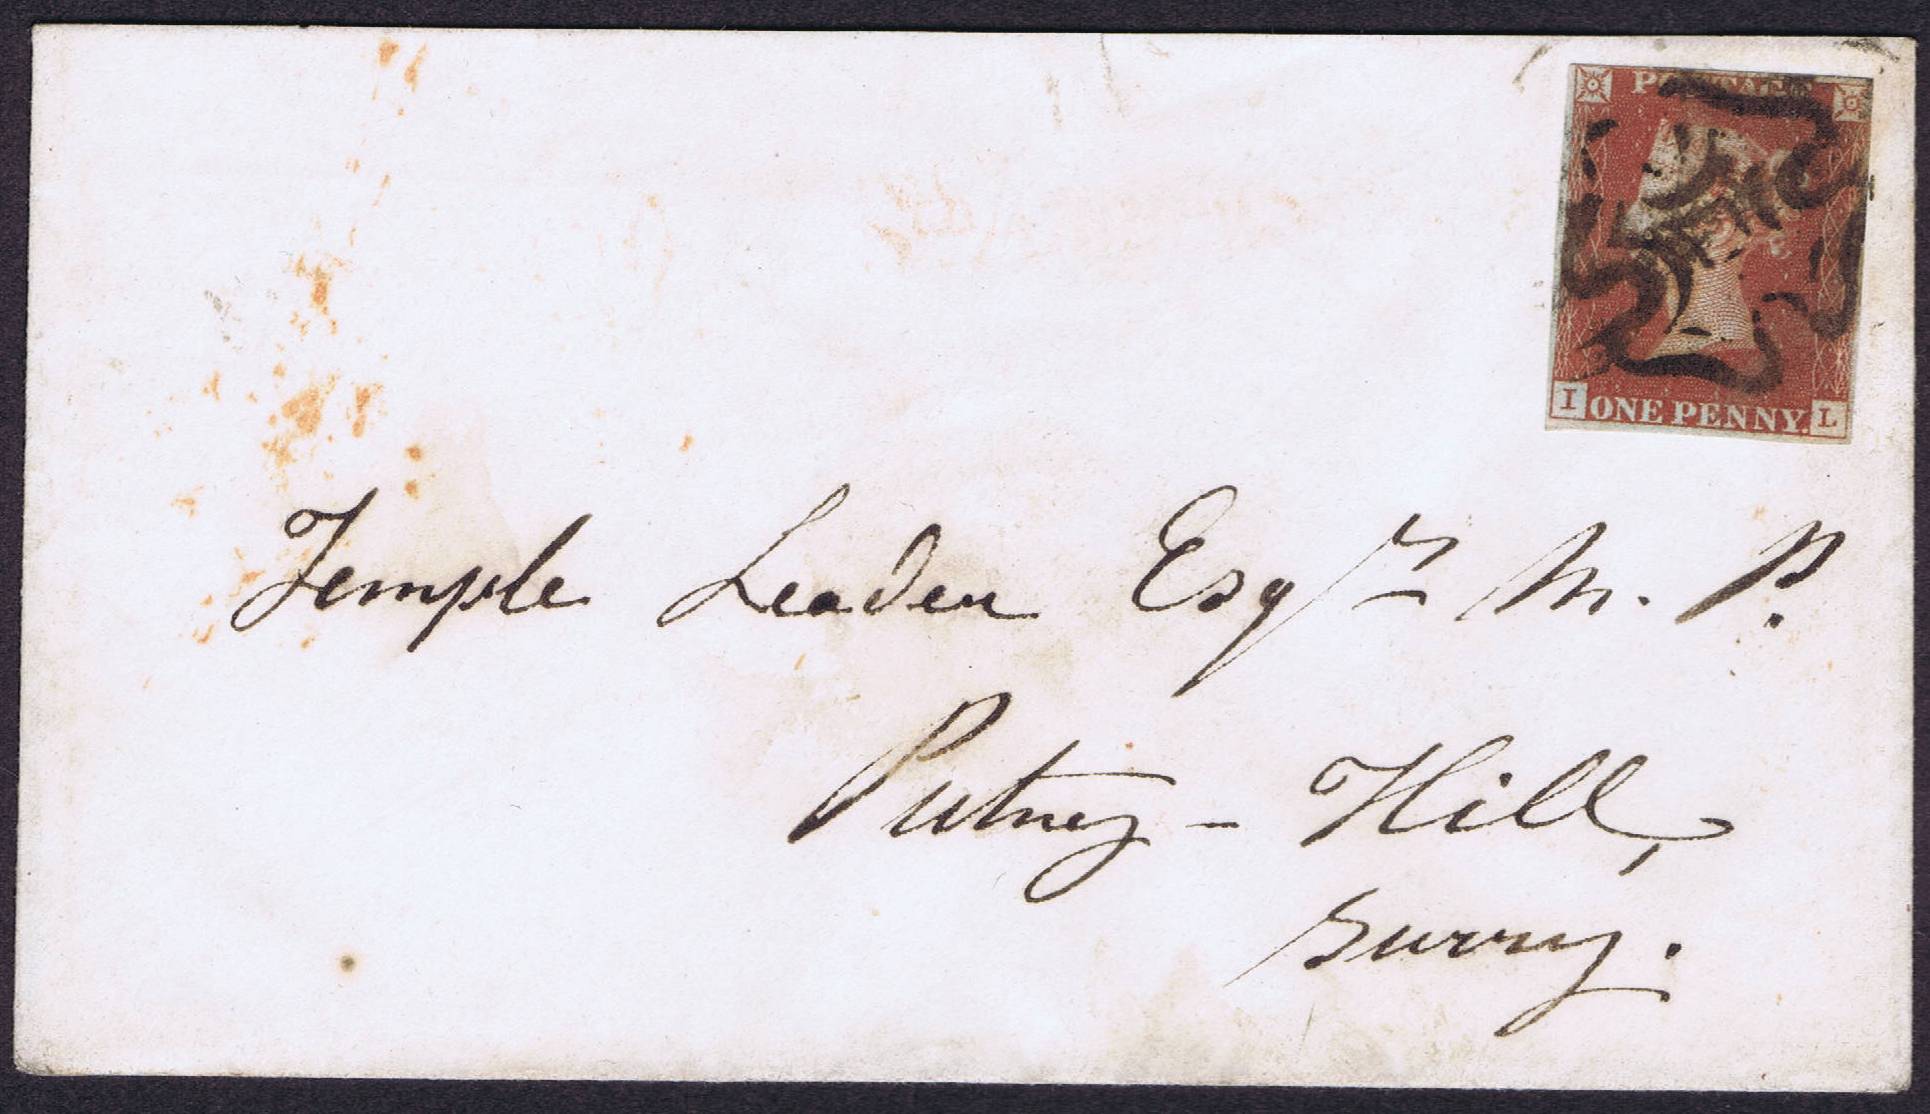 POSTAGE
I ONE PENNY. L
Temple Leader Esqr M. P.
Putney - Hill,
Surry.